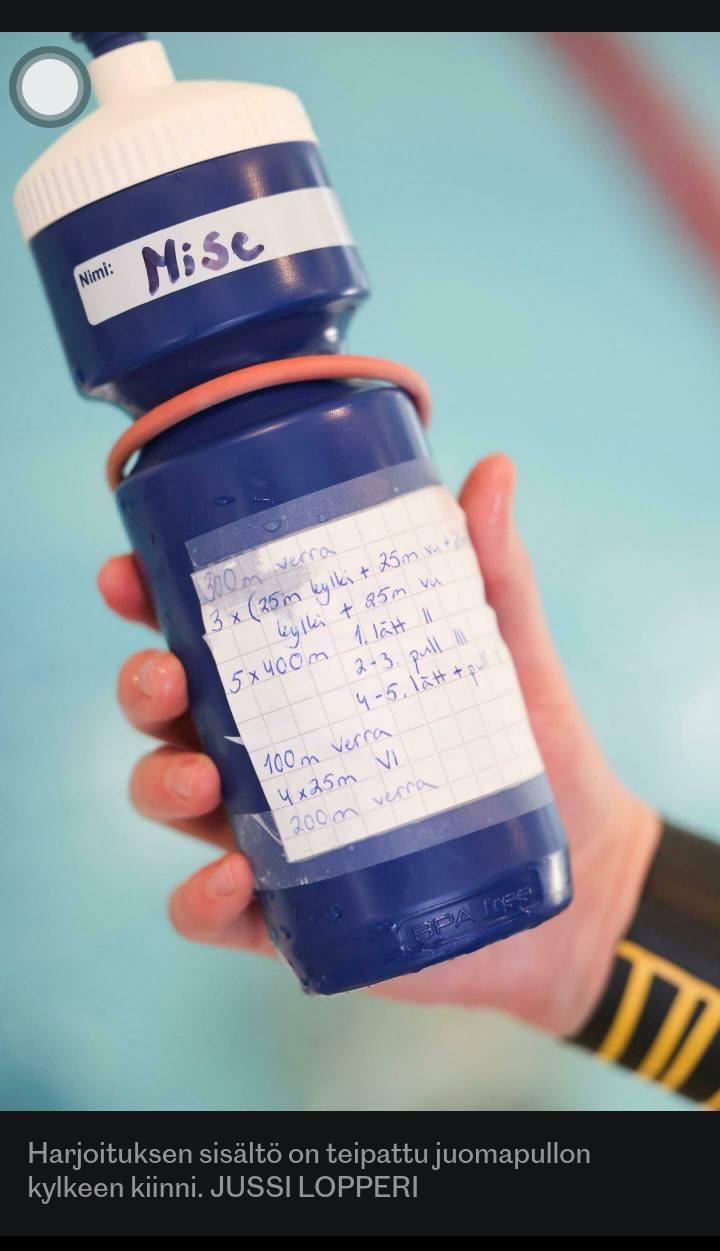 Nimi: Mise
300m verra
3 x (25m kylki + 25m vu +
kylki + 25m vu
5x400m 1. lätt II
2-3. pull III
4-5. lätt + pull
100m verra
4x25m VI
200m verra
BPA free
Harjoituksen sisältö on teipattu juomapullon
kylkeen kiinni. JUSSI LOPPERI